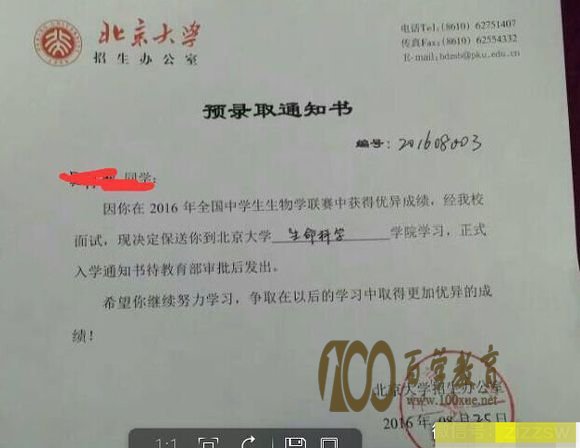 北京大学
招生办公室
电话Tel:(8610) 62751407
传真Fax:(8610) 62554332
E-mail:bdzsb@pku.edu.cn
预录取通知书
编号: 201608003
同学:
因你在 2016 年全国中学生生物学联赛中获得优异成绩，经我校
面试，现决定保送你到北京大学 生命科学 学院学习，正式
入学通知书待教育部审批后发出。
希望你继续努力学习，争取在以后的学习中取得更加优异的成
绩！
100百学教育
www.100xue.net
北京大学招生办公室
2016 年 08 月 25 日
微信号: zizzsw
1:1